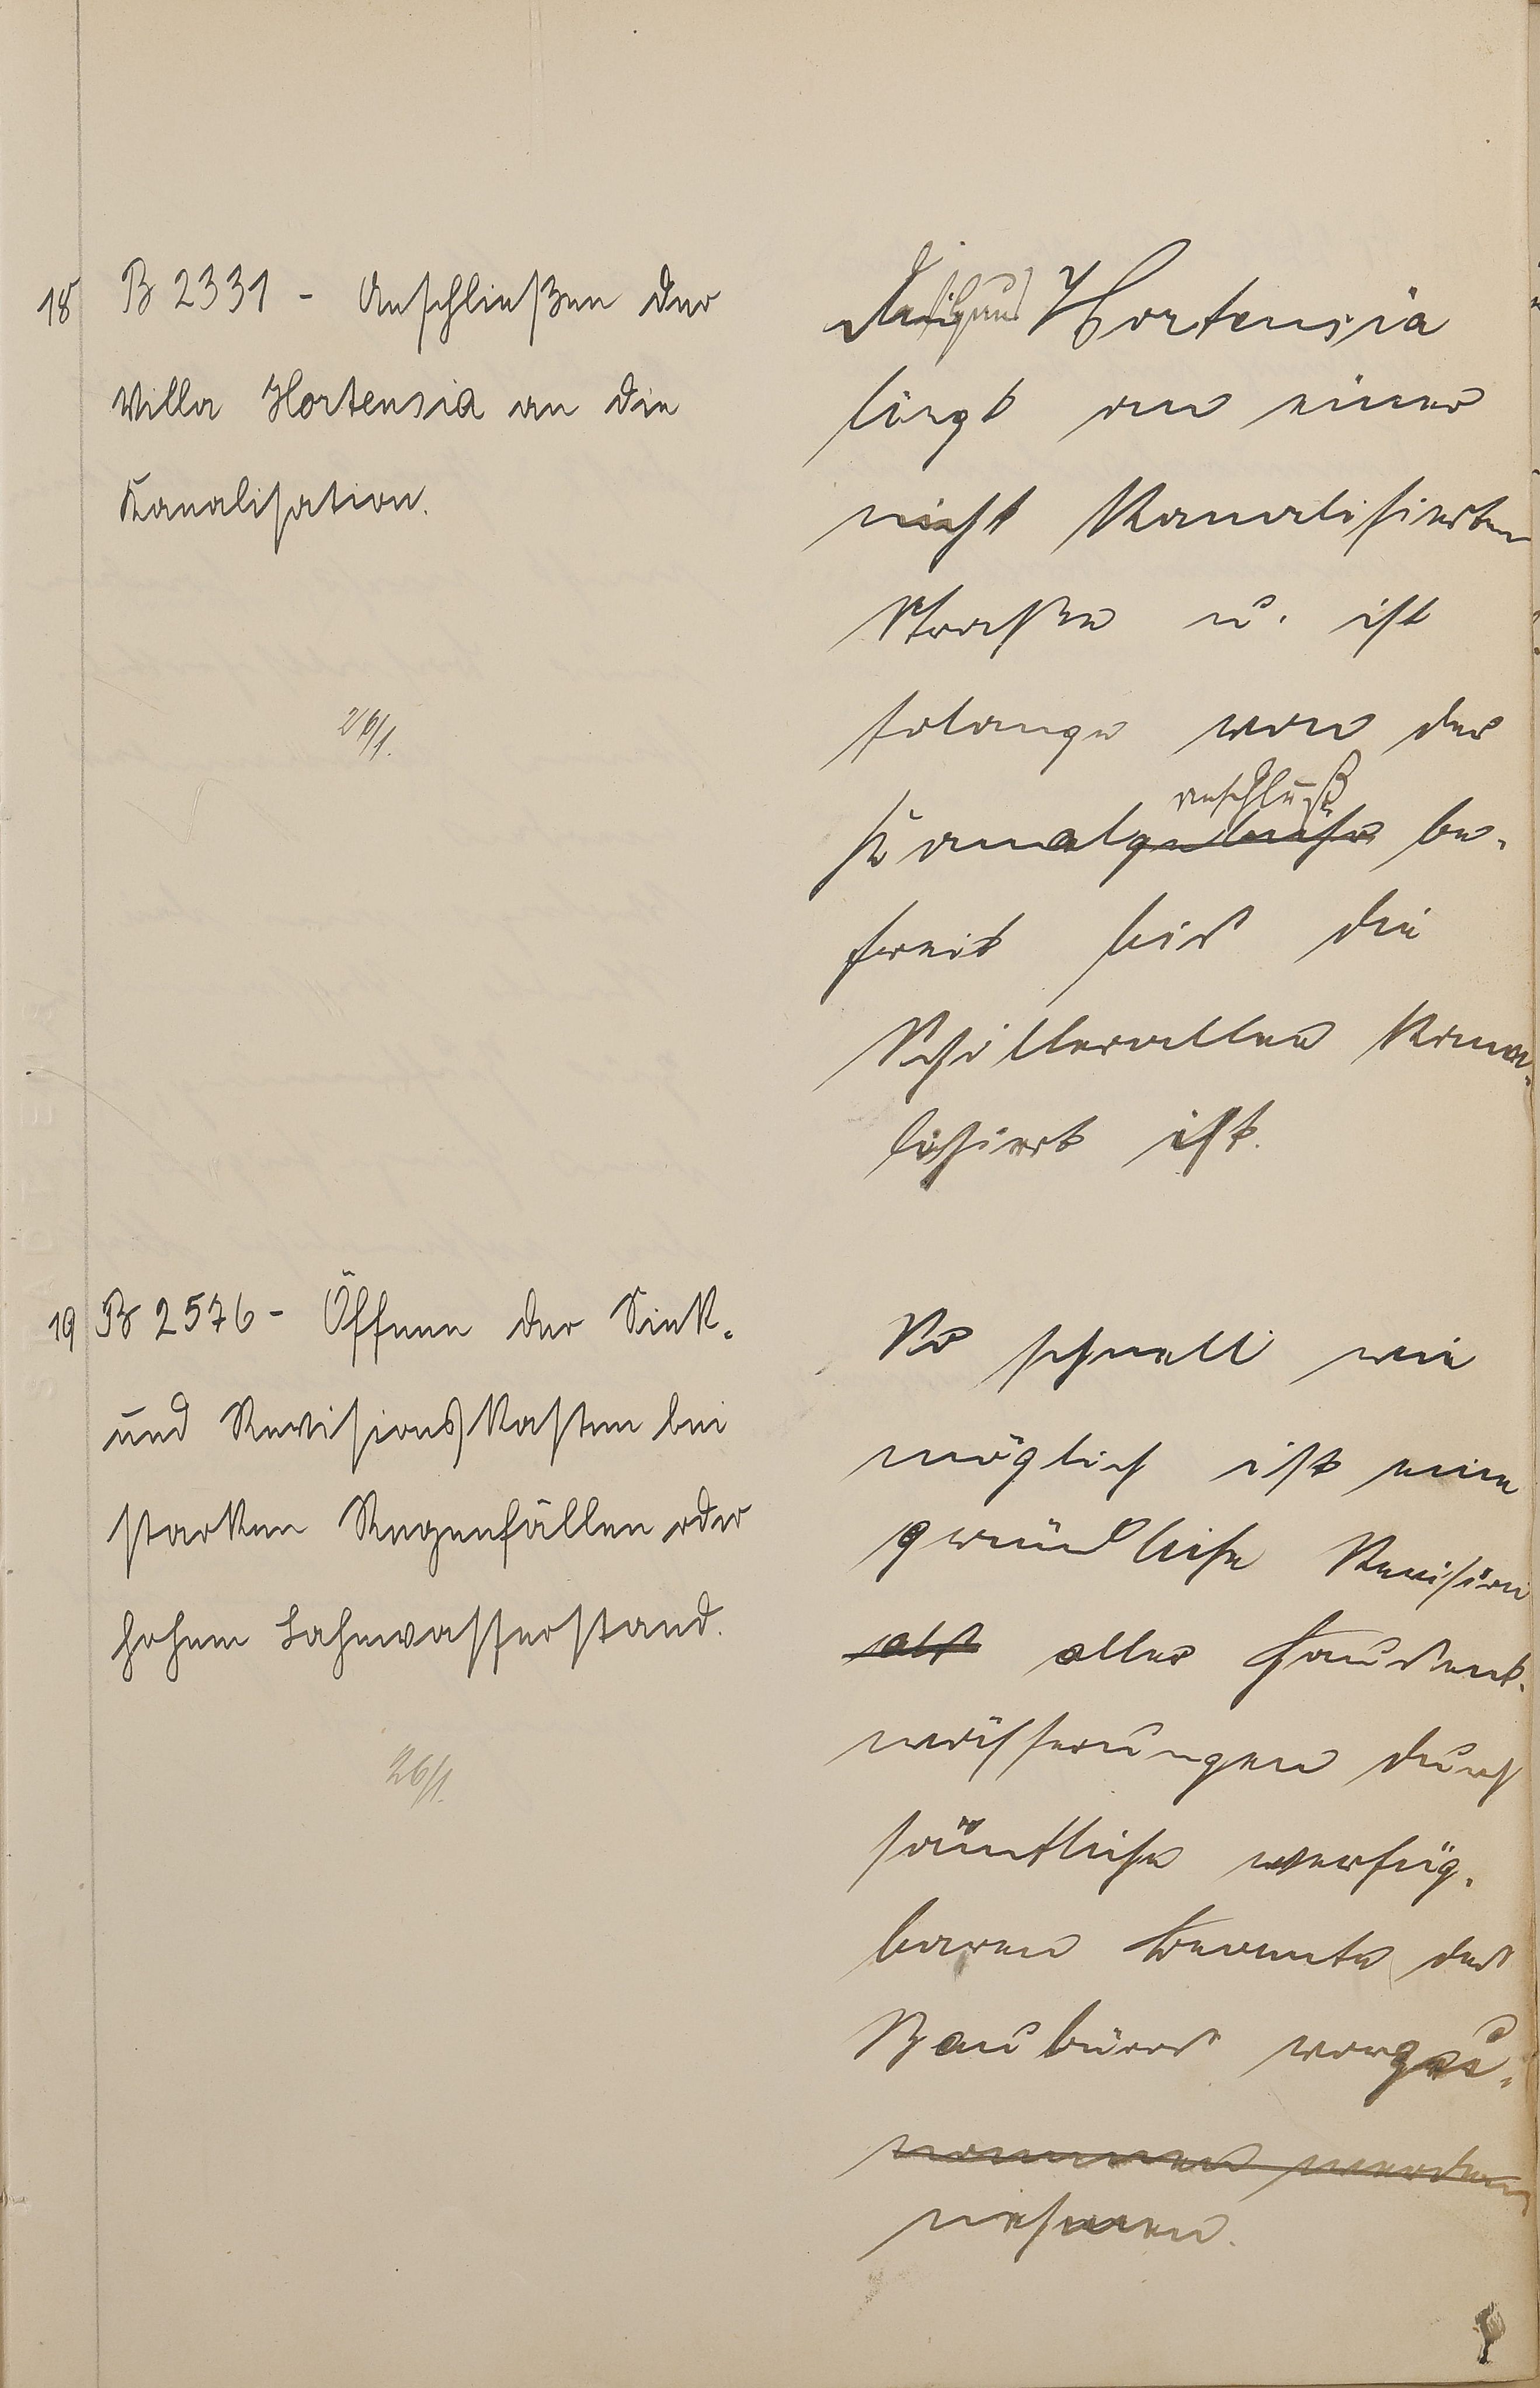 18 B 2331 - Anschließen der
Villa Hortensia an die
Kanalisation.
26/1.
Hortensia
liegt an einer
nicht Kanalisierten
Straße u. ist
solange von der
anschluß
Kanalgebühr be-
freit bis die
Schillerallee Kana-
lisiert ist.
19 B 2576 - Öffnen der Sink-
und Revisionskasten bei
starken Regenfällen oder
hohem Lahnwasserstand.
26/1.
So schnell wie
möglich ist eine
gründliche Revision
aller Hausent-
wässerungen durch
sämtliche verfüg-
baren Beamte des
Baubüros vorzu-
nommen werden
nehmen.